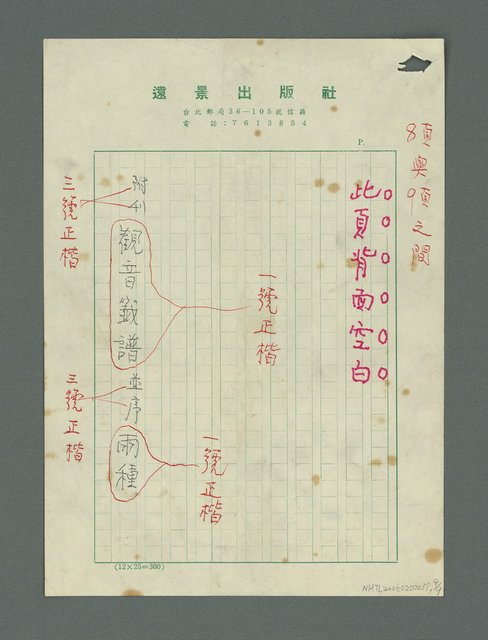 遠景出版社
台北郵局36—105號信箱
電話:7613854
P.
8頁與9頁之間
此頁背面空白
一號正楷
附刊
觀音籤譜
並序
兩種
三號正楷
三號正楷
一號正楷
(12×25=300)
NMTL20060200037